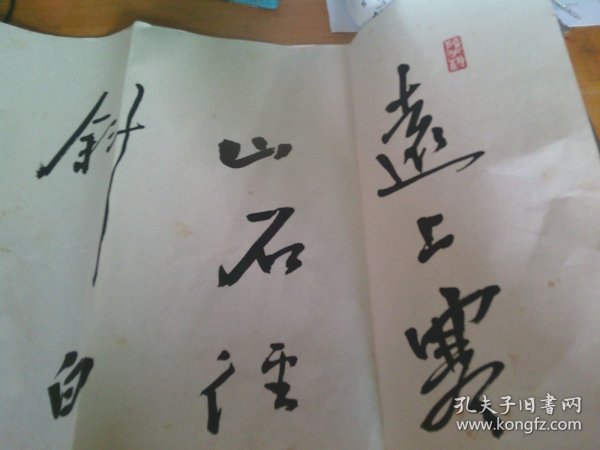 遠上寒
山石徑
斜白
孔夫子旧书网
www.kongfz.com